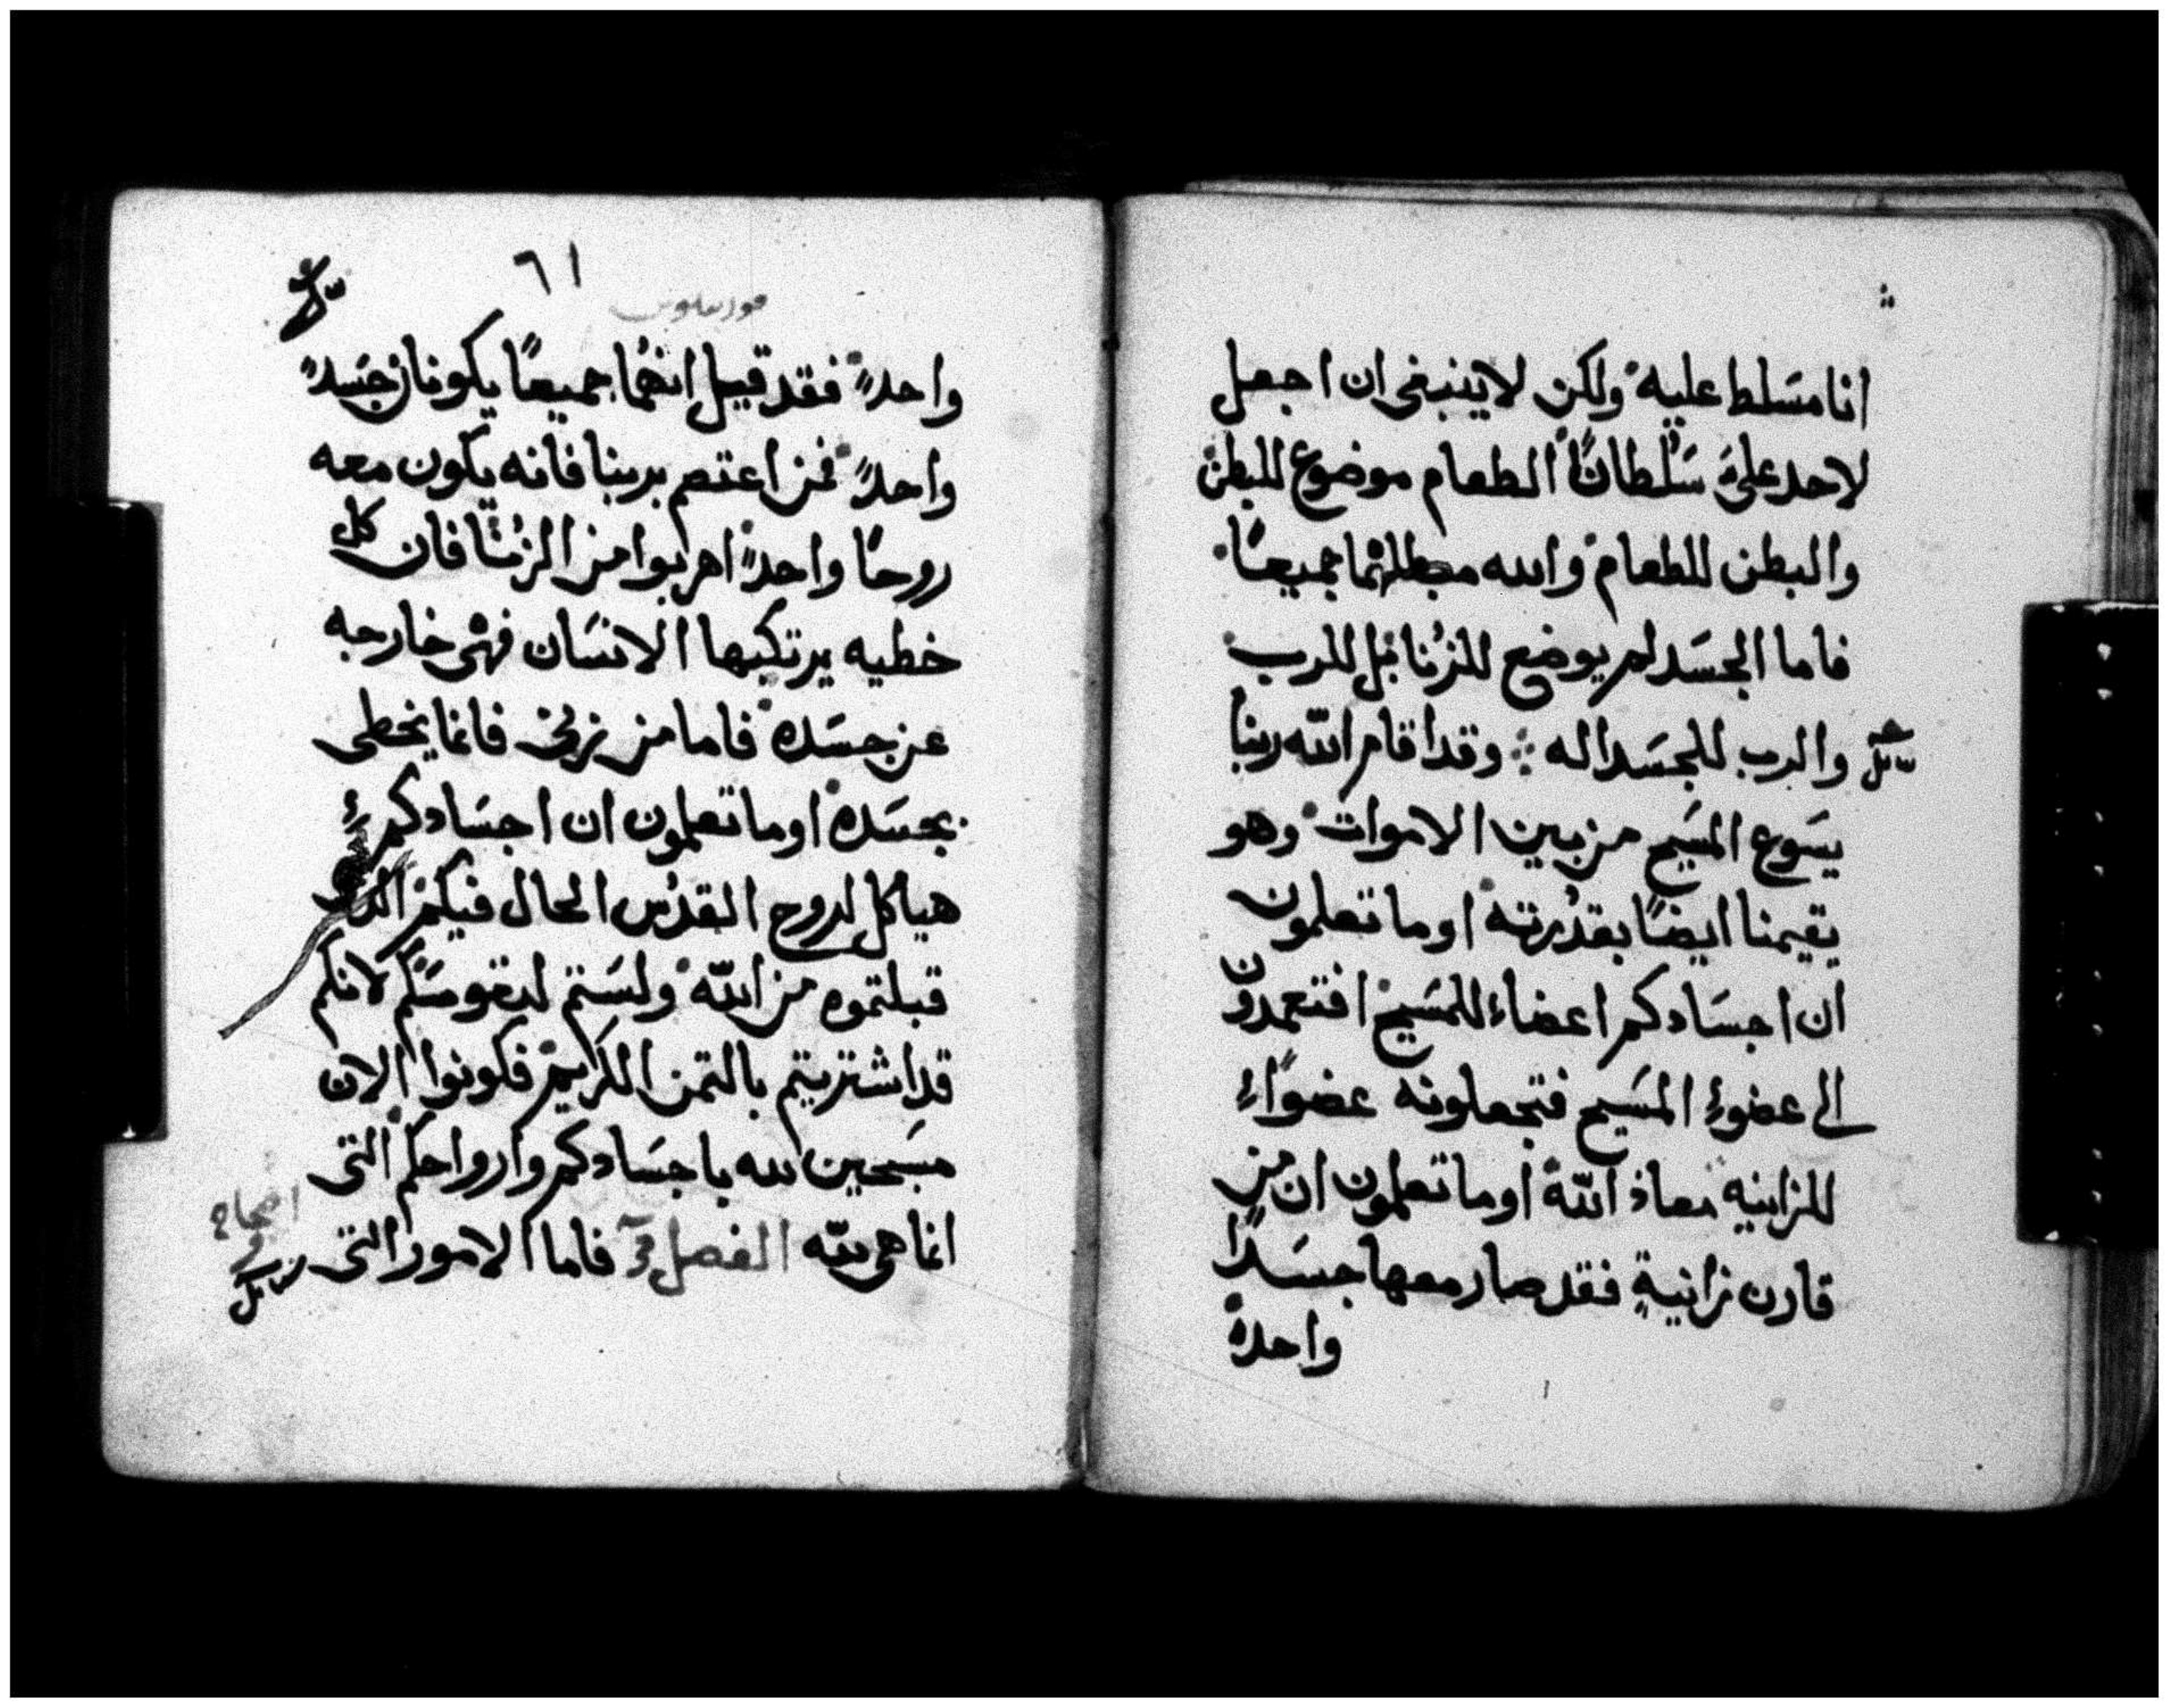 انا مسَلط عليه ولكن لا ينبغى ان اجعل
لاحد علىَ سَلُطانًا الطعام موضوع للبطن
والبطن للطعام والله مبطلهما جميعًا
فاما الجسَد لم يوضع للزُنا بل للرب
والرب للجسَد اله ۞ وقد اقام اللّه ربنا
يسَوع المسَيح من بين الاموات وهو
يقيمنا ايضًا بقدُرته اوما تعلمون
ان اجسَادكم اعضاء للمسَيح افتعمدون
الى عضوءِ المسَيح فتجعلونه عضوًاءِ
للزانيه معاذ اللّه اوما تعلمون ان من
قارن زانيةٍ فقد صار معها جسَدًا
واحدًا
٦١
واحدًا فقد قيل انهُما جميعًا يكونان جسَدًا
واحدًا فمن اعتصم بربنا فانه يكون معه
روحًا واحدًا اهربوا من الزُنا فان كل
خطيه يرتكبها الانسَان فهى خارجه
عن جسَده فاما من يزنى فانما يخطى
بجسَده اوما تعلمون ان اجسَادكم
هياكل لروح القدُس الحال فيكم الذى
قبلتموه من اللّه ولسَتم لدىقوسَكم لانكم
قد اشتريتم بالتمن الكريم فكونوا الان
مسَبحين لله باجسَادكم وارواحكم التى
انما هى للّه الفصل فاما الامور التى